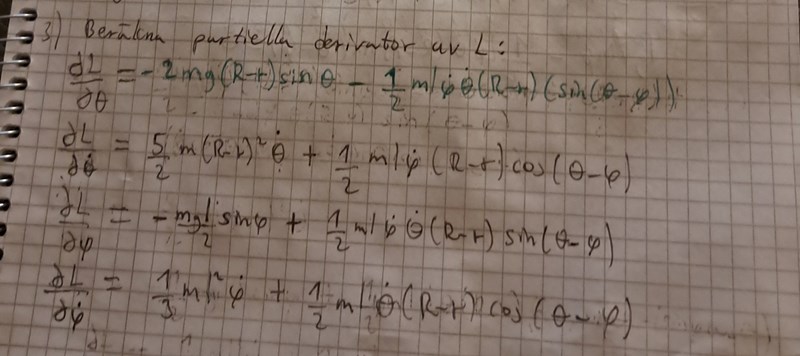 3) Beräkna partiella derivator av L:
∂L/∂θ = -2mg(R-r)sinθ - 1/2 ml φ̇ θ̇ (R-r)(sin(θ-φ))
∂L/∂θ̇ = 5/2 m(R-r)² θ̇ + 1/2 ml φ̇ (R-r) cos(θ-φ)
∂L/∂φ = -mgl/2 sinφ + 1/2 ml φ̇ θ̇ (R-r) sin(θ-φ)
∂L/∂φ̇ = 1/3 ml² φ̇ + 1/2 ml θ̇ (R-r) cos(θ-φ)